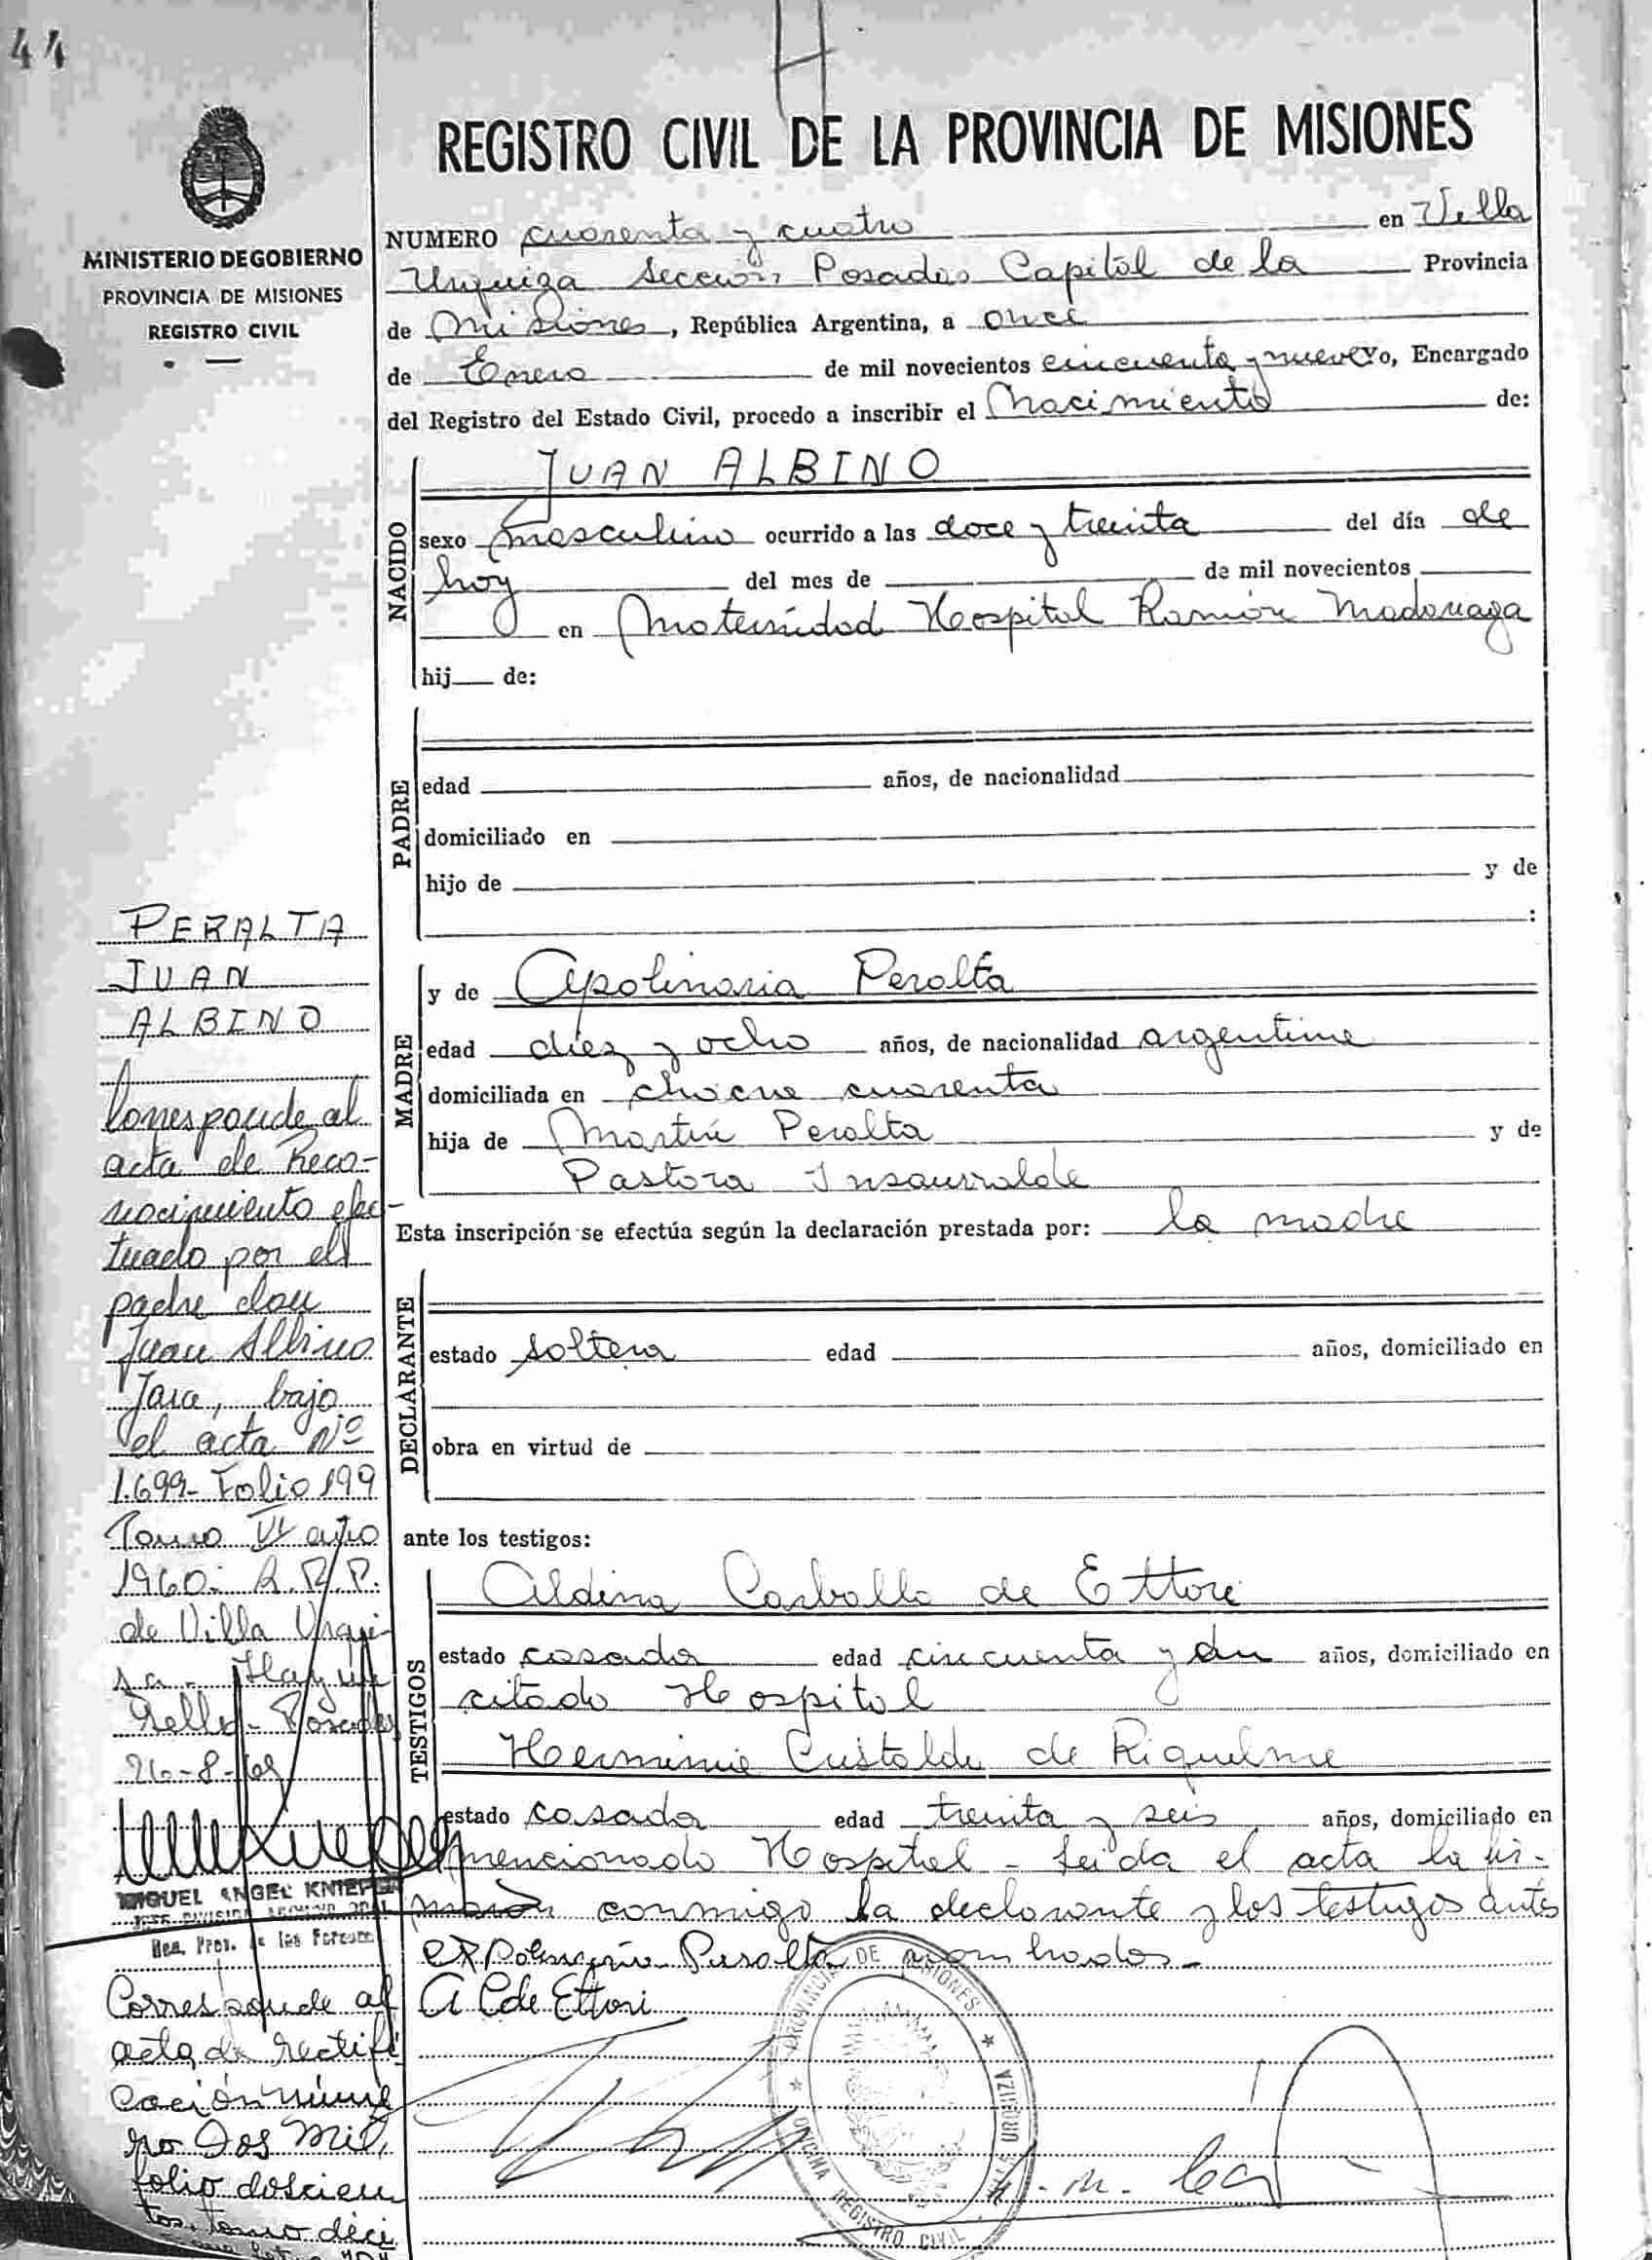 44
MINISTERIO DE GOBIERNO
PROVINCIA DE MISIONES
REGISTRO CIVIL
REGISTRO CIVIL DE LA PROVINCIA DE MISIONES
NUMERO cuarenta y cuatro en Villa
Urquiza Sección Posadas Capital de la Provincia
de Misiones, República Argentina, a once
de Enero de mil novecientos cincuenta y nueve Yo, Encargado
del Registro del Estado Civil, procedo a inscribir el Nacimiento de:
NACIDO
JUAN ALBINO
sexo masculino ocurrido a las doce y treinta del día de
hoy del mes de de mil novecientos
en Maternidad Hospital Ramón Madariaga
hij de:
PADRE
edad años, de nacionalidad
domiciliado en
hijo de y de
:
MADRE
y de Apolinaria Peralta
edad diez y ocho años, de nacionalidad argentina
domiciliada en chacra cuarenta
hija de Martín Peralta y de
Pastora Insaurralde
Esta inscripción se efectúa según la declaración prestada por: la madre
DECLARANTE
estado soltera edad años, domiciliado en
obra en virtud de
ante los testigos:
TESTIGOS
Aldina Carballo de Ettori
estado casada edad cincuenta y un años, domiciliado en
citado Hospital
Herminia Cristaldo de Riquelme
estado casada edad treinta y seis años, domiciliado en
mencionado Hospital - Leída el acta la fir-
maron conmigo la declarante y los testigos antes
Apolinaria Peralta nombrados.-
A C de Ettori
PROVINCIA DE MISIONES
OFICINA REGISTRO CIVIL
VILLA URQUIZA
PERALTA
JUAN
ALBINO
Corresponde al
acta de Reco-
nocimiento efec-
tuado por el
padre don
Juan Albino
Jara, bajo
el acta Nº
1.699- Folio 199
Tomo VI año
1960.- R.P.P.
de Villa Urqui-
za - Hay un
Sello- Posadas
26-8-
MIGUEL ANGEL
JEFE DIVISION
Reg. Prov. de las Personas
Corresponde al
acta de rectifi
cación núme
ro Dos Mil,
folio doscien
tos, tomo déci